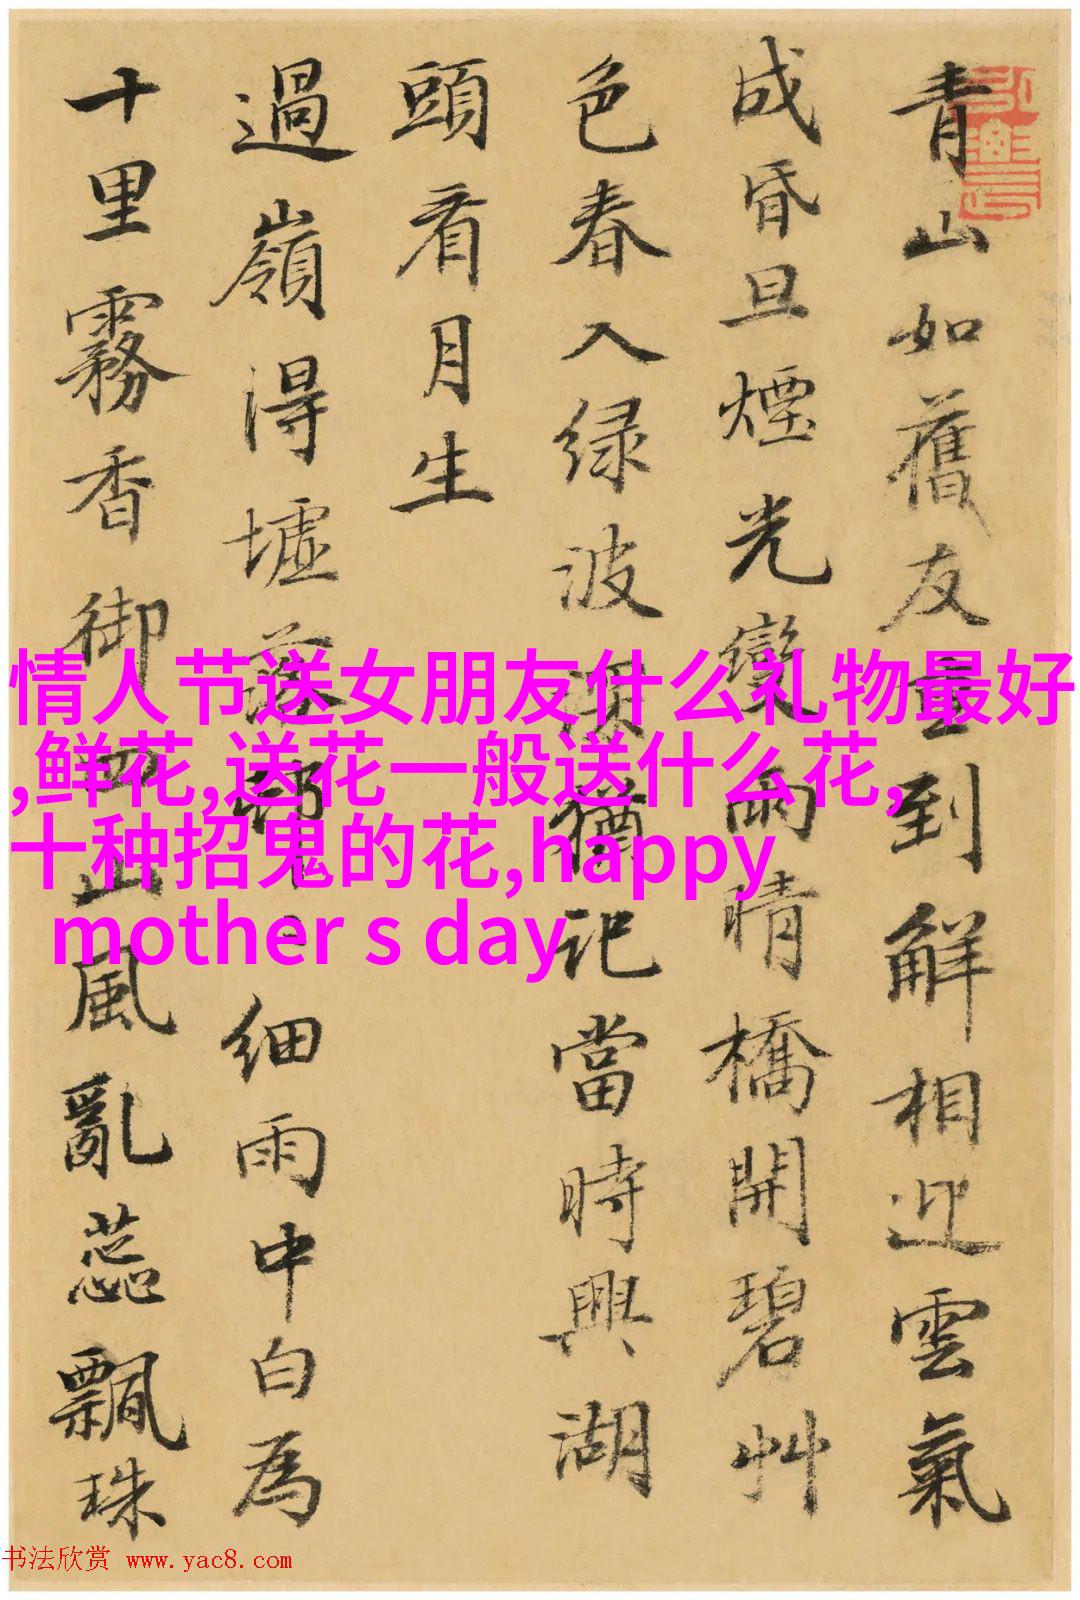 青山如舊友重到解相迎雲氣
成昏旦煙光變雨晴橋開碧艸
色春入绿波猶记當時興湖
頭看月生
過嶺得墟落邨〻细雨中白為
十里霧香御四山風亂蕊飄珠
情人节送女朋友什么礼物最好
,鲜花,送花一般送什么花,
十种招鬼的花,happy
mother s day
书法欣赏 www.yac8.com